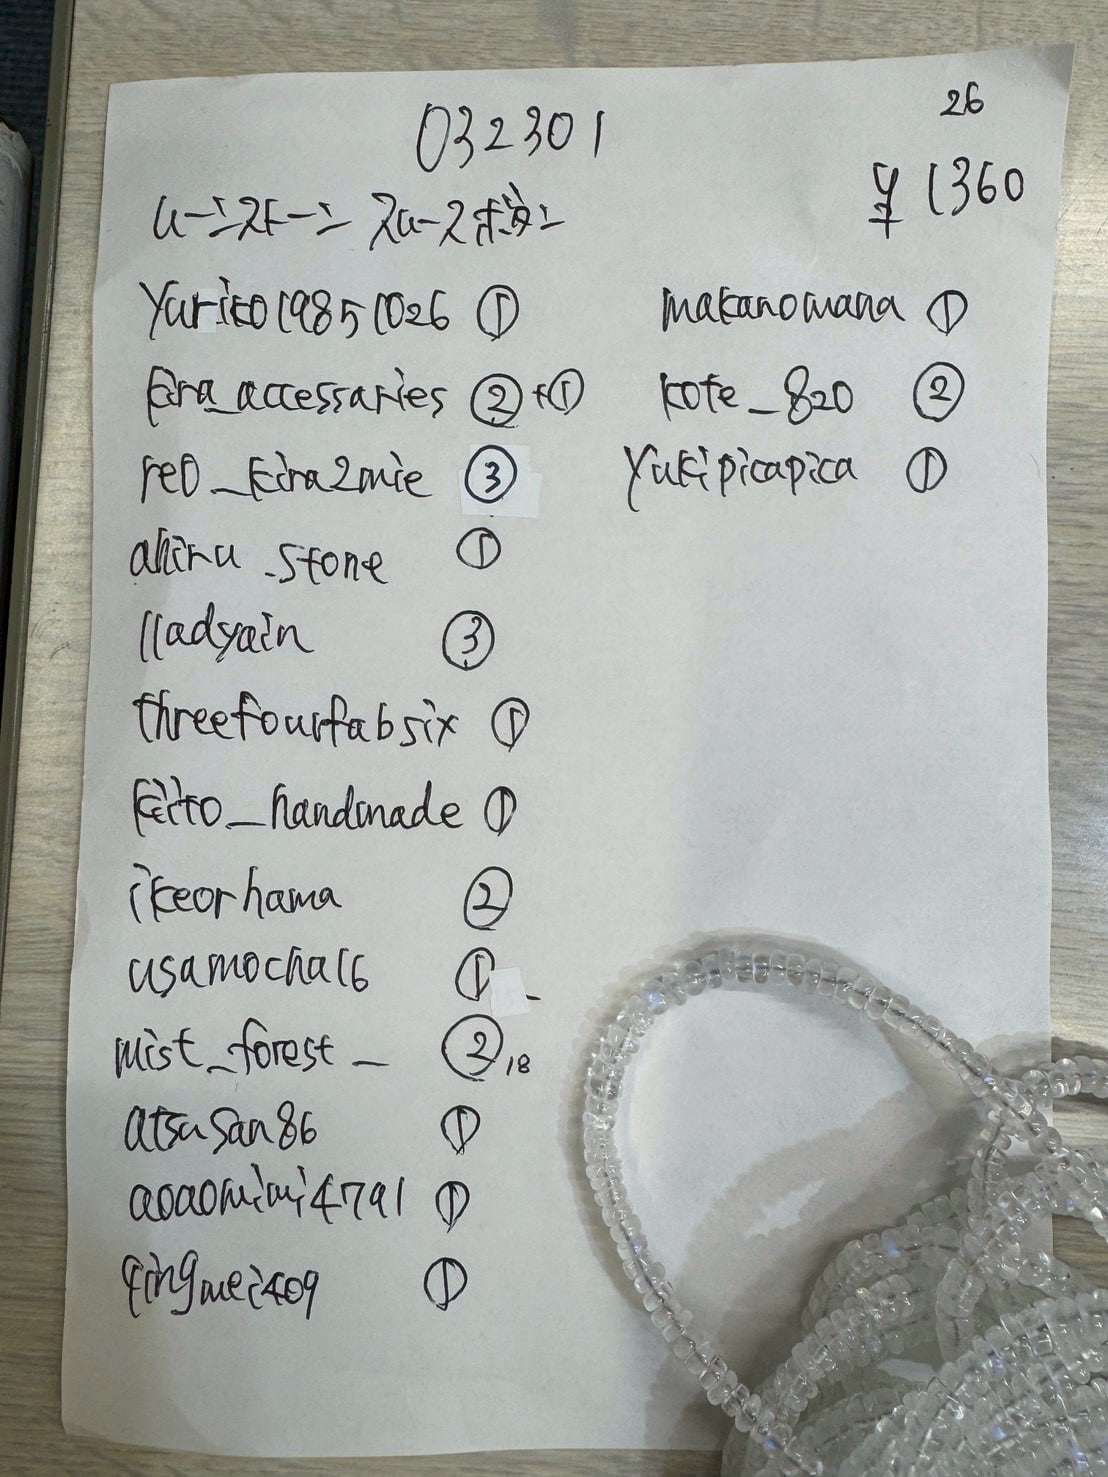 032301
26
¥1360
ムーンストーン スムースボタン
yuriko19851026 ①
kira_accessaries ②+①
reo_kira2mie ③
ahiru_stone ①
lladyain ③
threefourfabsix ①
keito_handmade ①
ikeorhama ②
usamocha16 ①
mist_forest_ ②,18
atsusan86 ①
aoaomimi4791 ①
qingmei409 ①
makanomana ①
kote_820 ②
yukipicapica ①